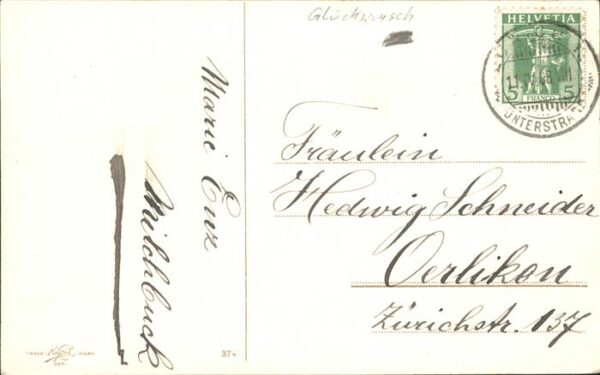 Glückwunsch
HELVETIA
5 5
FRANCO
UNTERSTRA
Marie Enz
Milchbuck
Fräulein
Hedwig Schneider
Oerlikon
Zürichstr. 137
TRADE MARK
874